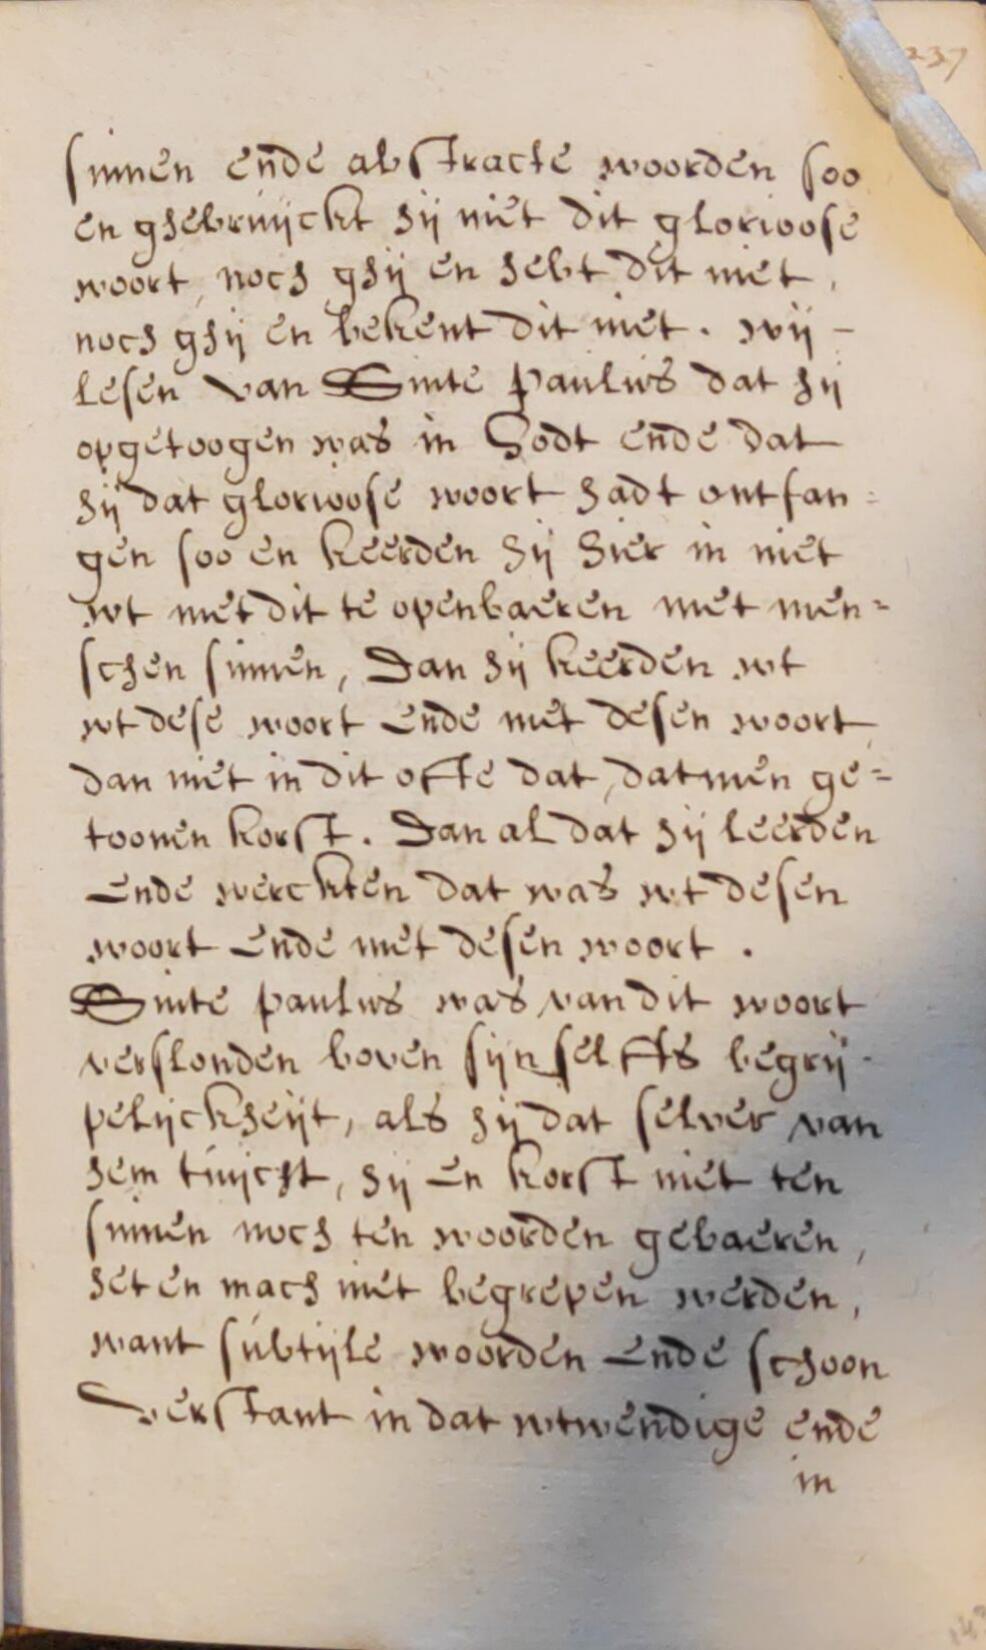 237
sinnen ende abstracte woorden soo
en ghebruijckt hij niet dit glorioose
woort, noch ghij en hebt dit niet,
noch ghij en bekent dit niet. wij -
lesen van Sinte Paulus dat hij
opgetoogen was in Godt ende dat
hij dat glorioose woort hadt ontfan=
gen soo en keerden hij hier in niet
wt met dit te openbaeren met men=
schen sinnen, Dan hij keerden wt
wt dese woort ende met desen woort
dan niet in dit ofte dat, datmen ge=
toonen korst. Dan al dat hij leerden
ende werckten dat was wt desen
woort ende met desen woort.
Sinte paulus was van dit woort
verslonden boven sijn selffs begrij-
pelijckheijt, als hij dat selver van
hem tuijcht, hij en korst niet ten
sinnen noch ten woorden gebaeren,
het en mach niet begrepen werden,
want subtijle woorden ende schoon
verstant in dat wtwendige ende
in